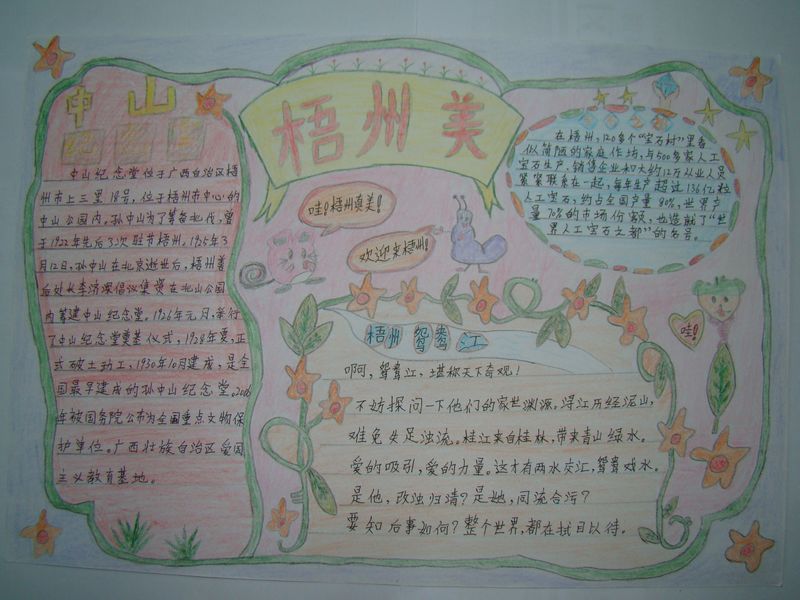 梧州美
中山
纪念堂
中山纪念堂位于广西自治区梧
州市土三里18号，位于梧州市中心的
中山公园内。孙中山为了筹备北伐，曾
于1922年先后3次驻节梧州。1925年3
月12日，孙中山在北京逝世后，梧州善
后处长李济深倡议集资在北山公园
内筹建中山纪念堂。1926年元月，举行
了中山纪念堂奠基仪式，1928年夏，正
式破土动工，1930年10月建成，是全
国最早建成的孙中山纪念堂。2006
年被国务院公布为全国重点文物保
护单位。广西壮族自治区爱国
主义教育基地。
哇！梧州真美！
欢迎来梧州！
在梧州，120多个“宝石村”里看
似简陋的家庭作坊，与500多家人工
宝石生产、销售企业和大约12万从业人员
紧紧联系在一起，每年生产超过136亿粒
人工宝石，约占全国产量80%，世界产
量70%的市场份额，也造就了“世
界人工宝石之都”的名号。
哇！
梧州鸳鸯江
啊，鸳鸯江，堪称天下奇观！
不妨探问一下他们的家世渊源。浔江历经泥山，
难免失足浊流。桂江来自桂林，带来青山绿水。
爱的吸引，爱的力量。这才有两水交汇，鸳鸯戏水。
是他，改浊归清？是她，同流合污？
要知后事如何？整个世界，都在拭目以待。